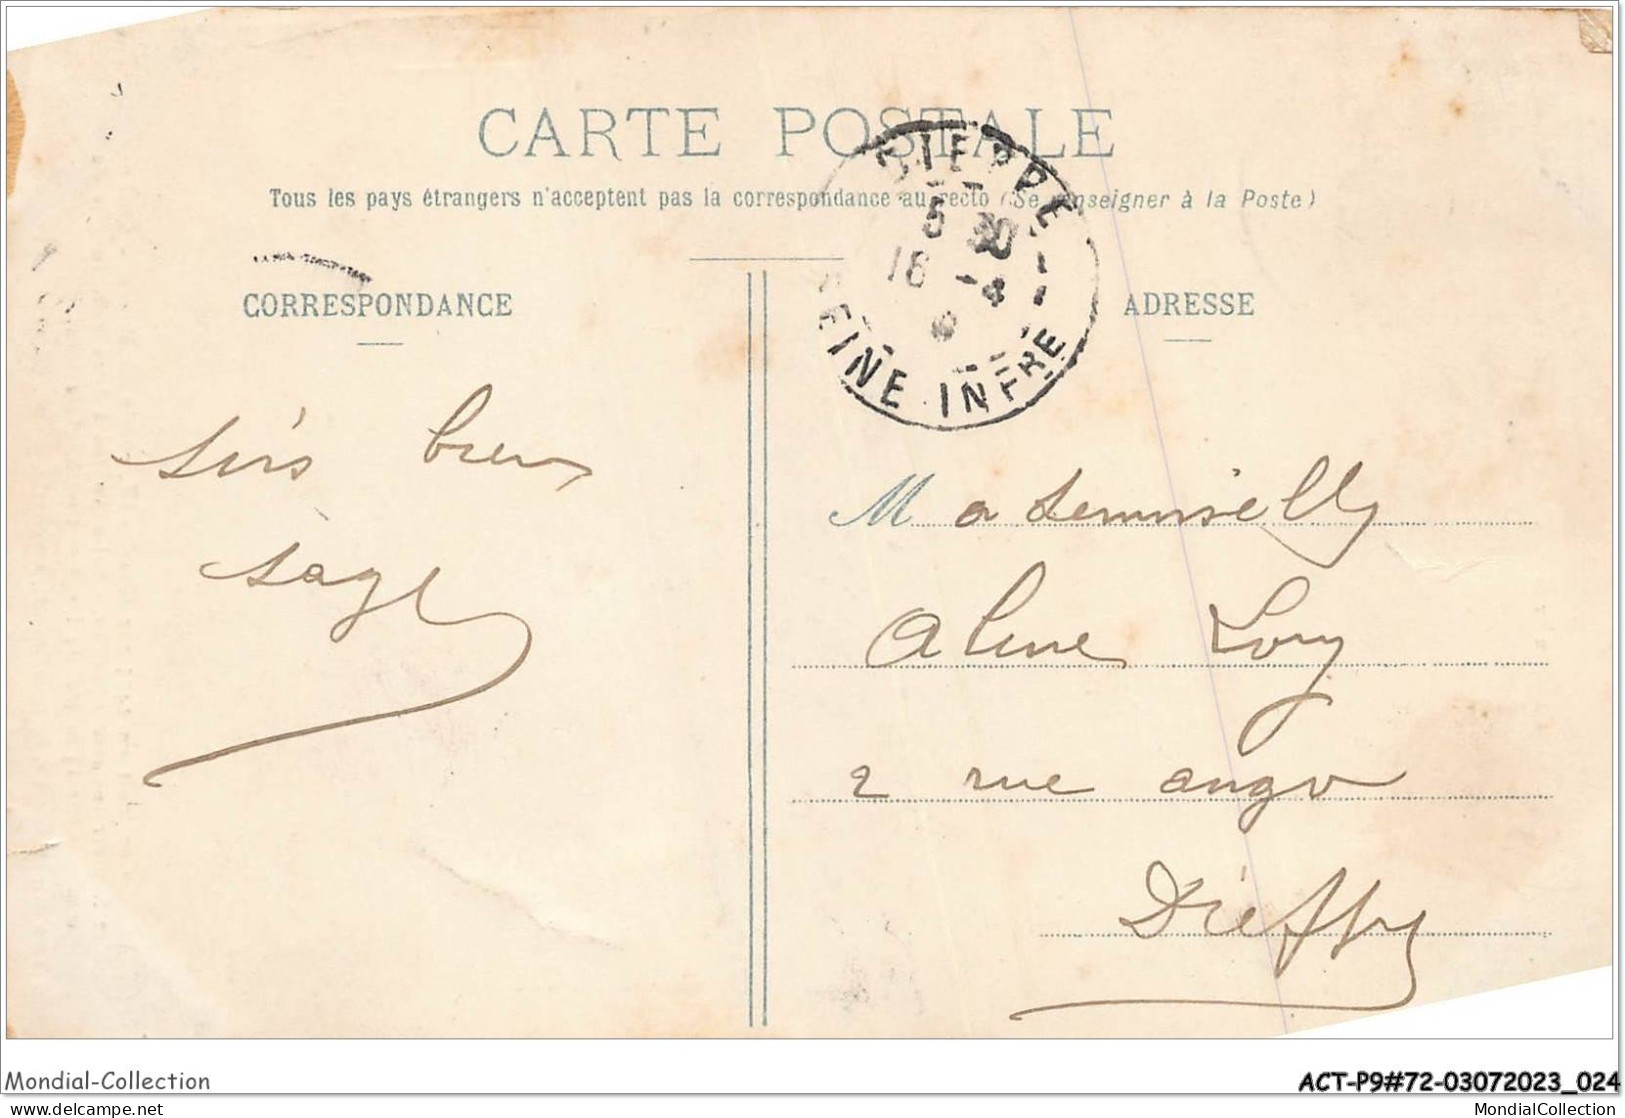 CARTE POSTALE
Tous les pays étrangers n'acceptent pas la correspondance au recto (Se renseigner à la Poste)
DIEPPE
5 30
16 -4
SEINE INFRE
CORRESPONDANCE
ADRESSE
sois bien
sage
Mademoiselle
Aline Lory
2 rue ango
Dieppe
Mondial-Collection
ACT-P9#72-03072023_024
www.delcampe.net
MondialCollection